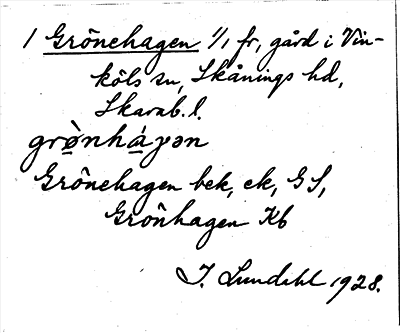 1 Grönehagen 1/1 fr, gård i Vin-
köls sn, Skånings hd,
Skarab. l.
grø̀nhá̱γən
Grönehagen bek, ek, GS,
Grönhagen Kb
I. Lundahl 1928.